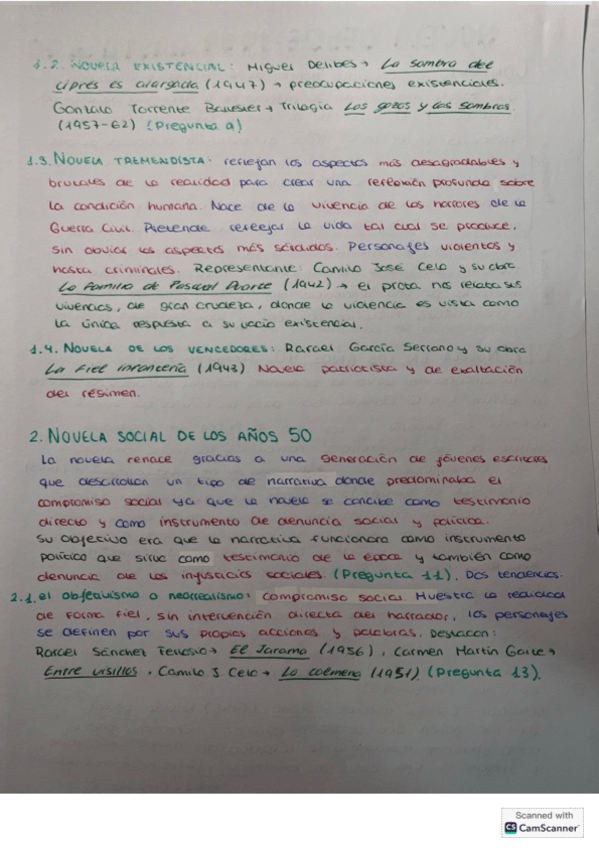 1.2. NOVELA EXISTENCIAL: Miguel Delibes → La sombra del
ciprés es alargada (1947) → preocupaciones existenciales.
Gonzalo Torrente Ballester → Trilogía Los gozos y las sombras.
(1957-62) (Pregunta a)
1.3. NOVELA TREMENDISTA: reflejan los aspectos más desagradables y
brutales de la realidad para crear una reflexión profunda sobre
la condición humana. Nace de la vivencia de los horrores de la
Guerra Civil. Pretende reflejar la vida tal cual se produce,
sin obviar los aspectos más sórdidos. Personajes violentos y
hasta criminales. Representante: Camilo José Cela y su obra
La familia de Pascual Duarte (1942) → el prota nos relata sus
vivencias, de gran crudeza, donde la violencia es vista como
la única respuesta a su vacío existencial.
1.4. NOVELA DE LOS VENCEDORES: Rafael García Serrano y su obra
La fiel infantería (1943) Novela patriotista y de exaltación
del régimen.
2. NOVELA SOCIAL DE LOS AÑOS 50
La novela renace gracias a una generación de jóvenes escritores
que desarrollan un tipo de narrativa donde predominaba el
compromiso social ya que la novela se concibe como testimonio
directo y como instrumento de denuncia social y política.
Su objetivo era que la narrativa funcionara como instrumento
político que sirve como testimonio de la época y también como
denuncia de las injusticias sociales. (Pregunta 11). Dos tendencias:
2.1. el objetivismo o neorrealismo: compromiso social. Muestra la realidad
de forma fiel, sin intervención directa del narrador, los personajes
se definen por sus propias acciones y palabras. Destacan:
Rafael Sánchez Ferlosio → El Jarama (1956), Carmen Martín Gaite →
Entre visillos, Camilo J. Cela → La colmena (1951) (Pregunta 13).
Scanned with
CS CamScanner